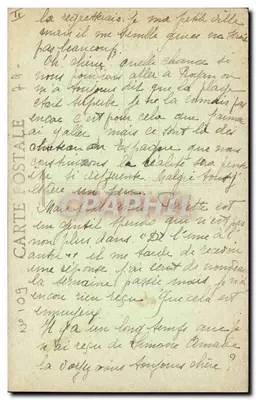 II
la regretterais je ma petite ville
mais il me semble que ce ne serait
pas beaucoup.
Oh! chérie, quelle chance si
nous pouvions aller à Royan on
m'a toujours dit que la plage
était superbe je ne la connais pas
encore c'est pour cela que j'aimerai
y aller, mais ce sont là des
châteaux en Espagne que nous
construisons la réalité sera peut-être
si différente. Malgré tout
espère un peu.
est
un gentil qui n'est pas
non plus dans "De l'une à
l'autre" il me tarde de recevoir
une réponse j'ai écrit de nouveau
la semaine passée mais je n'ai
encore rien reçu. Que cela est
ennuyeux.
Il y a un long temps que je
n'ai reçu de Simone
la vois-tu toujours chérie?
CARTE POSTALE
No 109
CPARAMA